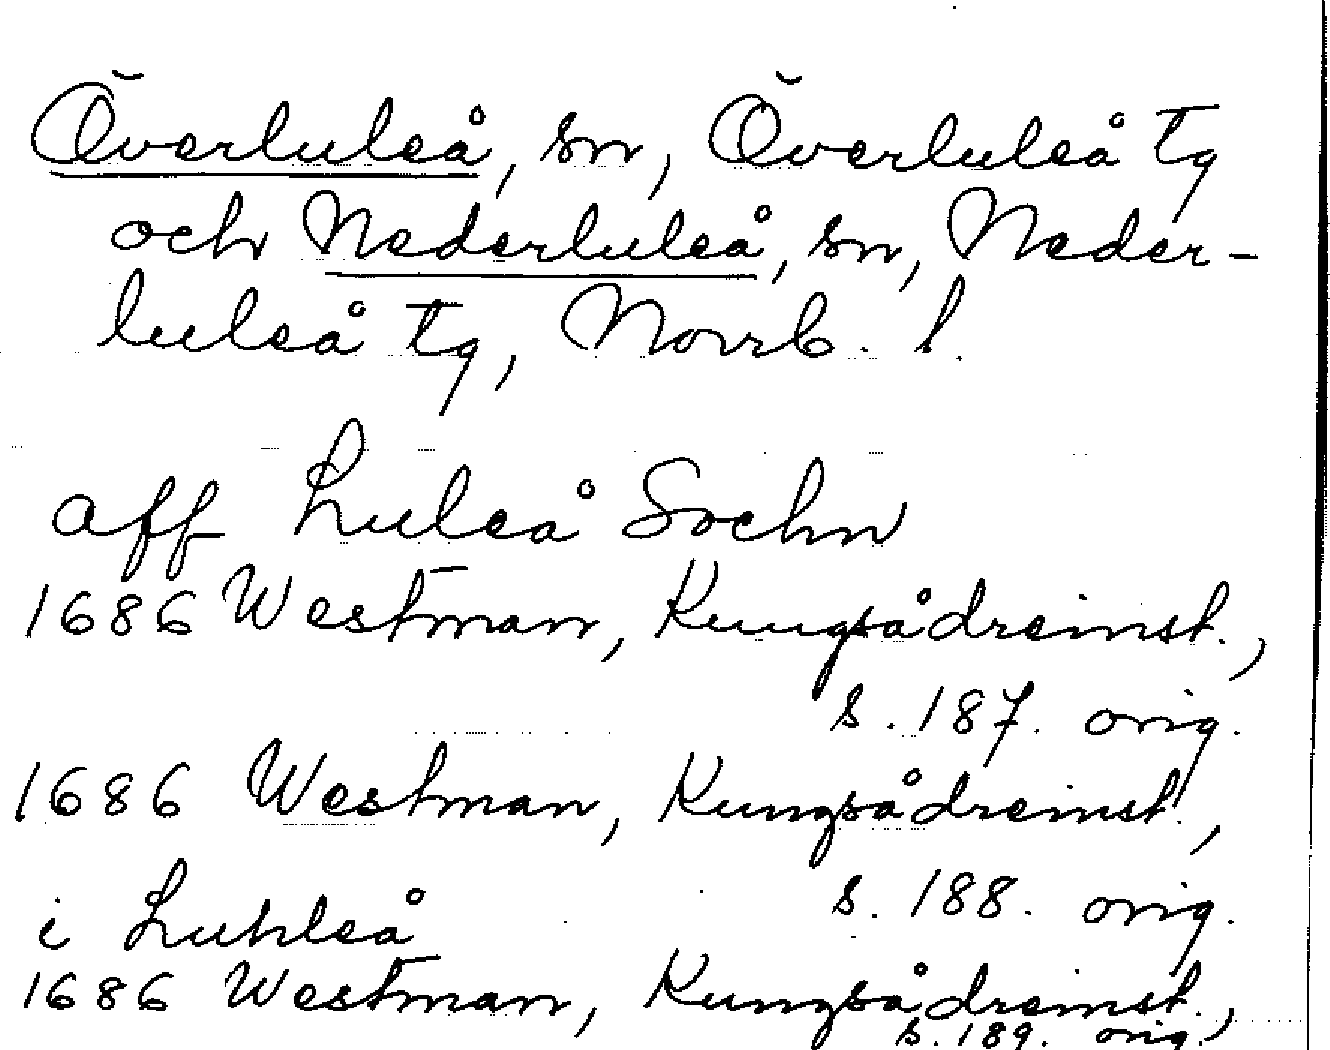 Överluleå, sn, Överluleå tg
och Nederluleå, sn, Neder-
luleå tg, Norrb. l.
aff Luleå Sochn
1686 Westman, Kungsådreinst.,
s. 187. orig.
1686 Westman, Kungsådreinst.,
s. 188. orig.
i Luhleå
1686 Westman, Kungsådreinst.,
s. 189. orig.